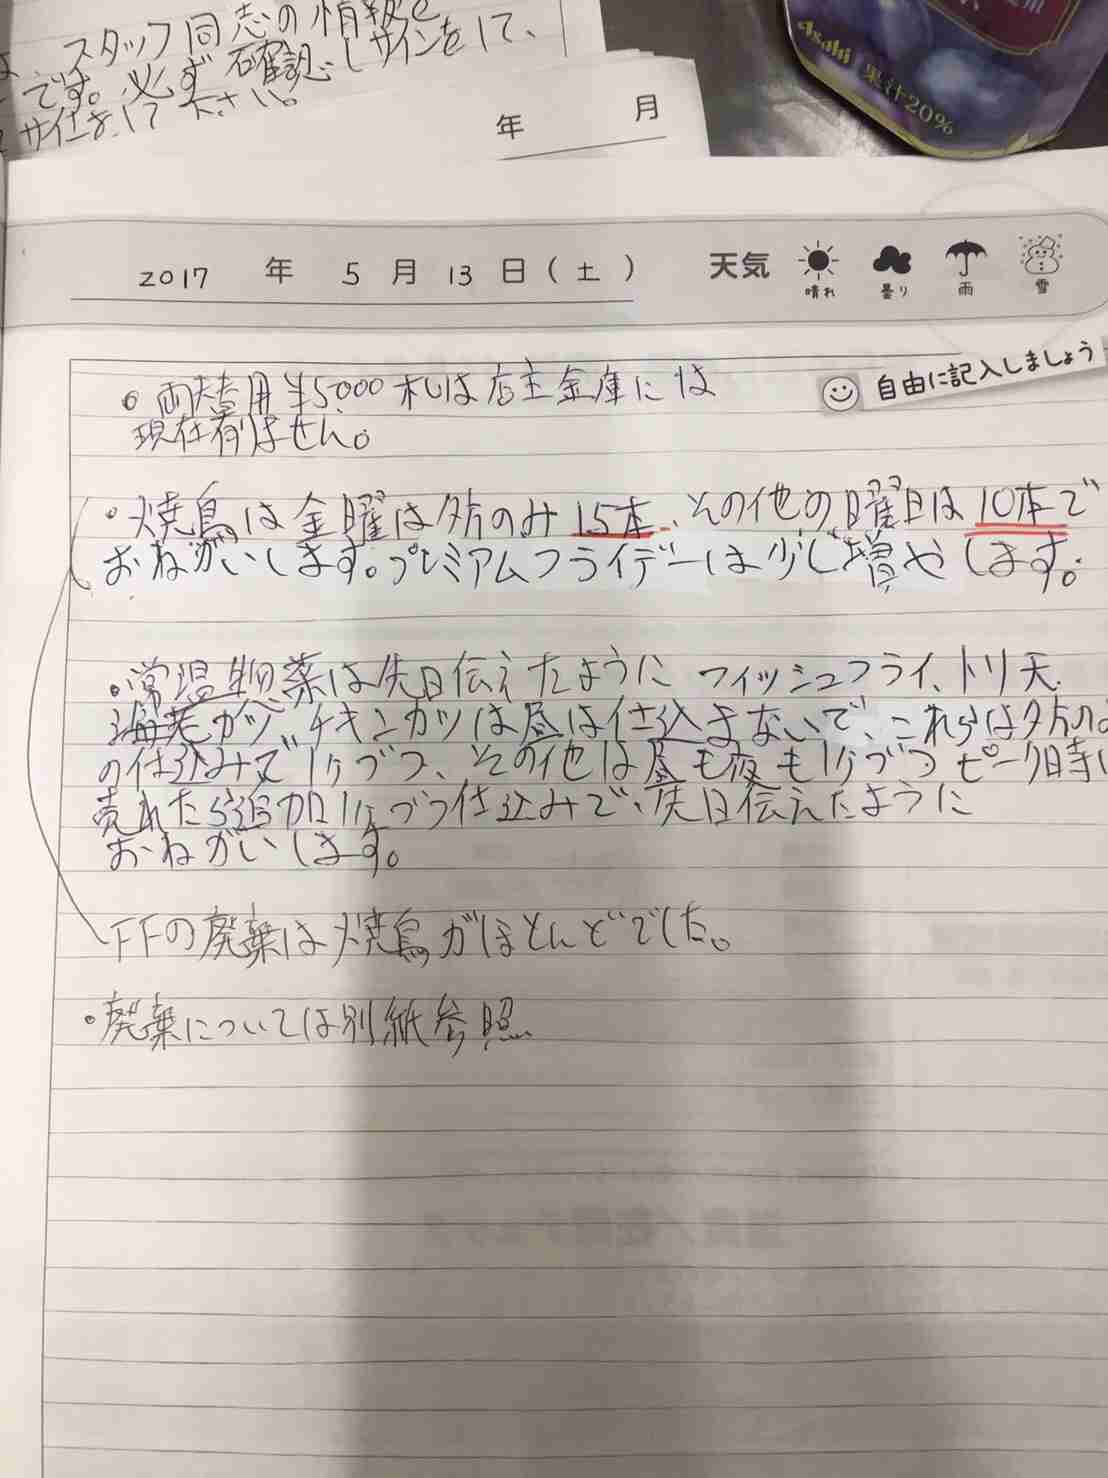 スタッフ同志の情報
です。必ず確認しサインをして、
サインをして下さい。
年 月
Asahi 果汁20%
2017 年 5 月 13 日 (土) 天気 晴れ 曇り 雨 雪
自由に記入しましょう
。両替用¥5,000札は店主金庫には
現在有りません。
・焼鳥は金曜は夕方のみ15本、その他の曜日は10本で
おねがいします。プレミアムフライデーは少し増やします。
・常温惣菜は先日伝えたように フィッシュフライ、トリ天
海老カツ、チキンカツは昼は仕込まないで、これらは夕方の
の仕込みで1ケづつ、その他は昼も夜も1ケづつ ピーク時に
売れたら追加1ケづつ仕込みで、先日伝えたように
おねがいします。
FFの廃棄は焼鳥がほとんどでした。
・廃棄については別紙参照